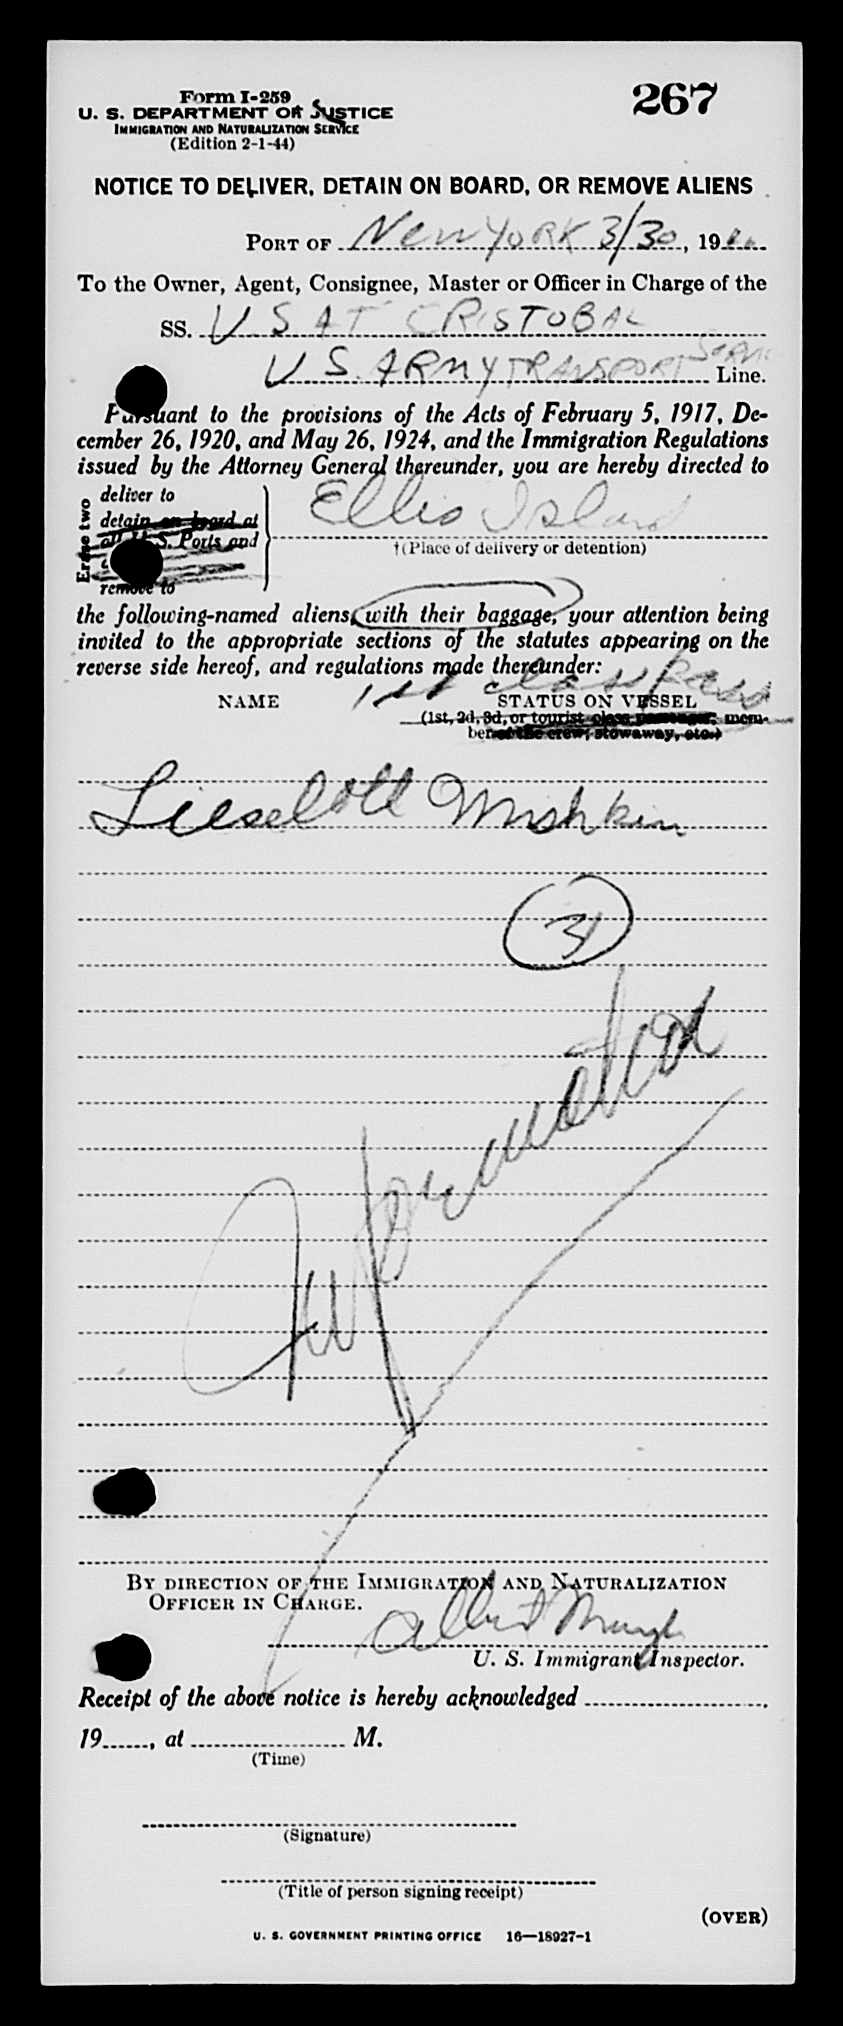 Form I-259
267
U. S. DEPARTMENT OF JUSTICE
IMMIGRATION AND NATURALIZATION SERVICE
(Edition 2-1-44)
NOTICE TO DELIVER, DETAIN ON BOARD, OR REMOVE ALIENS
PORT OF New York 3/30, 19
To the Owner, Agent, Consignee, Master or Officer in Charge of the
SS. USAT CRISTOBAL
U S. ARMY TRANSPORT Line.
Pursuant to the provisions of the Acts of February 5, 1917, De-
cember 26, 1920, and May 26, 1924, and the Immigration Regulations
issued by the Attorney General thereunder, you are hereby directed to
Erase two
deliver to
detain on board at
all U. S. Ports and
remove to
Ellis Island
†(Place of delivery or detention)
the following-named aliens, with their baggage, your attention being
invited to the appropriate sections of the statutes appearing on the
reverse side hereof, and regulations made thereunder:
1st class pass
NAME
STATUS ON VESSEL
(1st, 2d, 3d, or tourist class passenger, mem-
ber of the crew, stowaway, etc.)
Lieselott Mushkin
Information
BY DIRECTION OF THE IMMIGRATION AND NATURALIZATION
OFFICER IN CHARGE.
Albert
U. S. Immigrant Inspector.
Receipt of the above notice is hereby acknowledged
19, at M.
(Time)
(Signature)
(Title of person signing receipt)
(OVER)
U. S. GOVERNMENT PRINTING OFFICE 16—18927-1